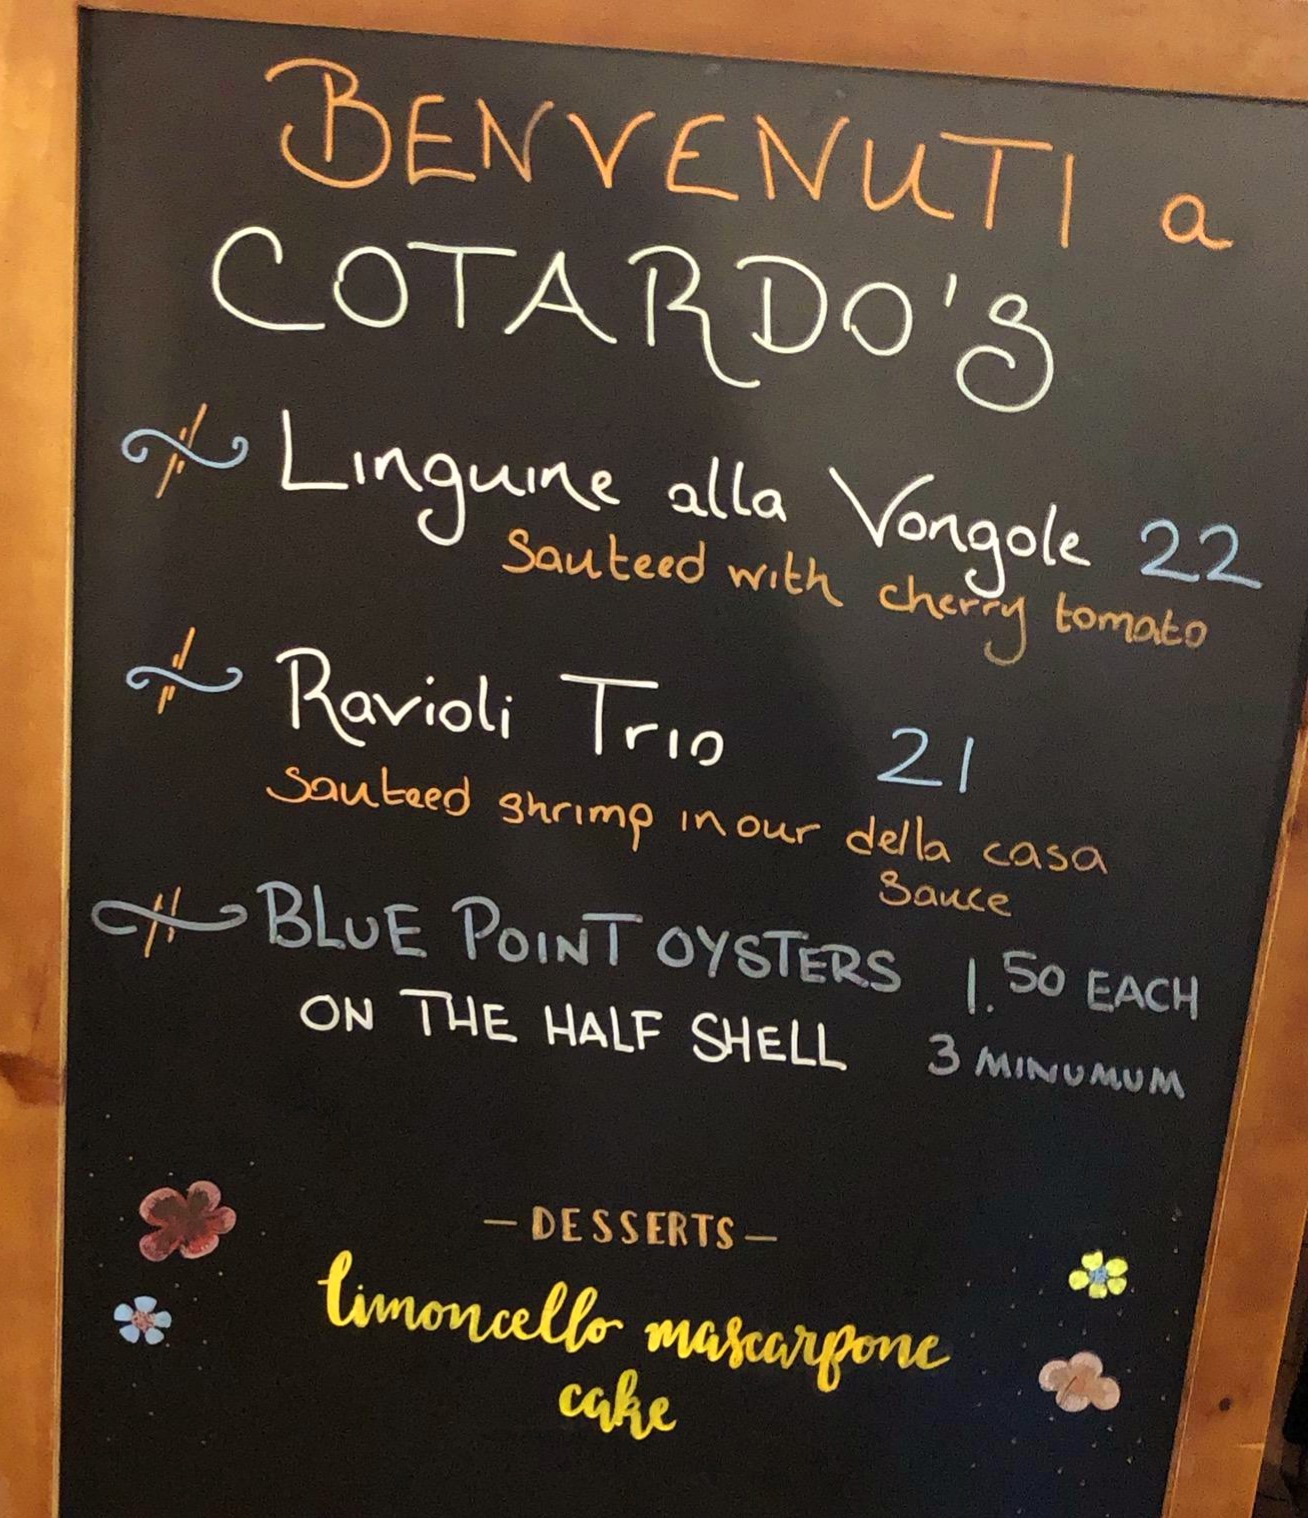 BENVENUTI a
COTARDO'S
Linguine alla Vongole 22
Sauteed with cherry tomato
Ravioli Trio 21
Sauteed shrimp in our della casa
Sauce
BLUE POINT OYSTERS 1.50 EACH
ON THE HALF SHELL 3 MINUMUM
- DESSERTS -
limoncello mascarpone
cake